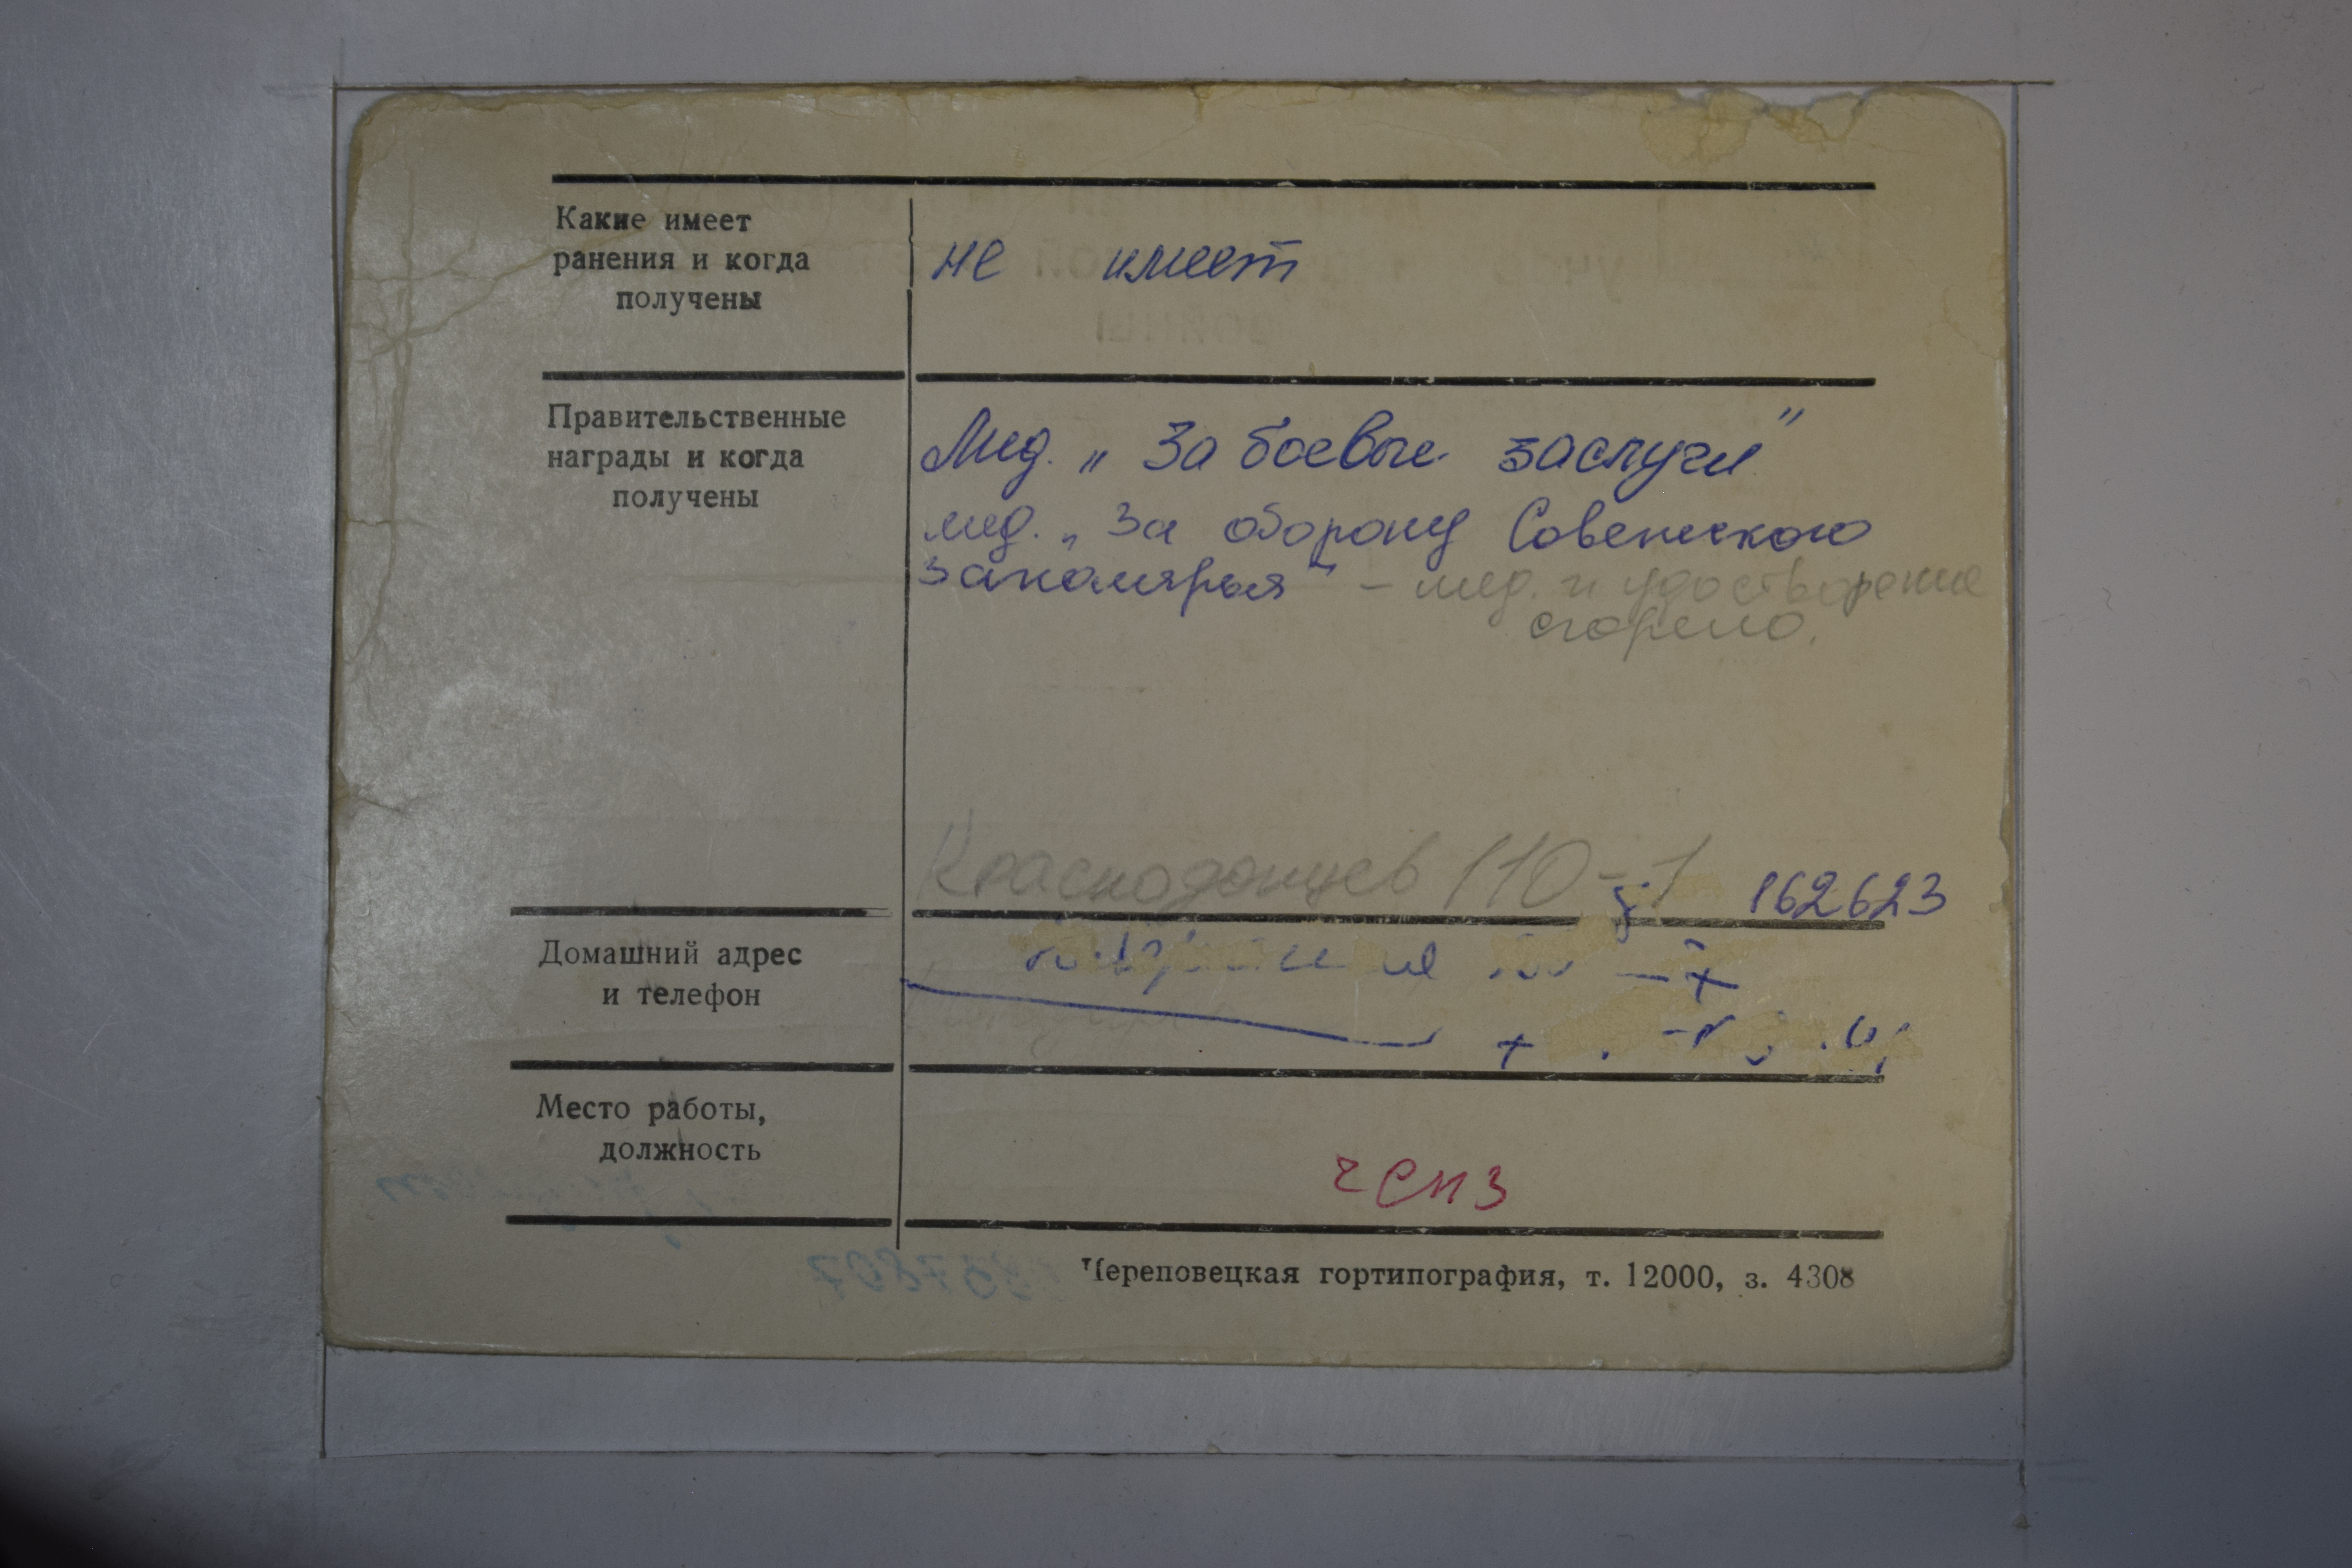 Какие имеет
ранения и когда
получены
не имеет
Правительственные
награды и когда
получены
Мед. „За боевые заслуги"
мед. „За оборону Советского
Заполярья" - мед. и удостоверение
сгорело.
Краснодонцев 110-1 162623
Домашний адрес
и телефон
Место работы,
должность
ЧСПЗ
Череповецкая гортипография, т. 12000, з. 4308